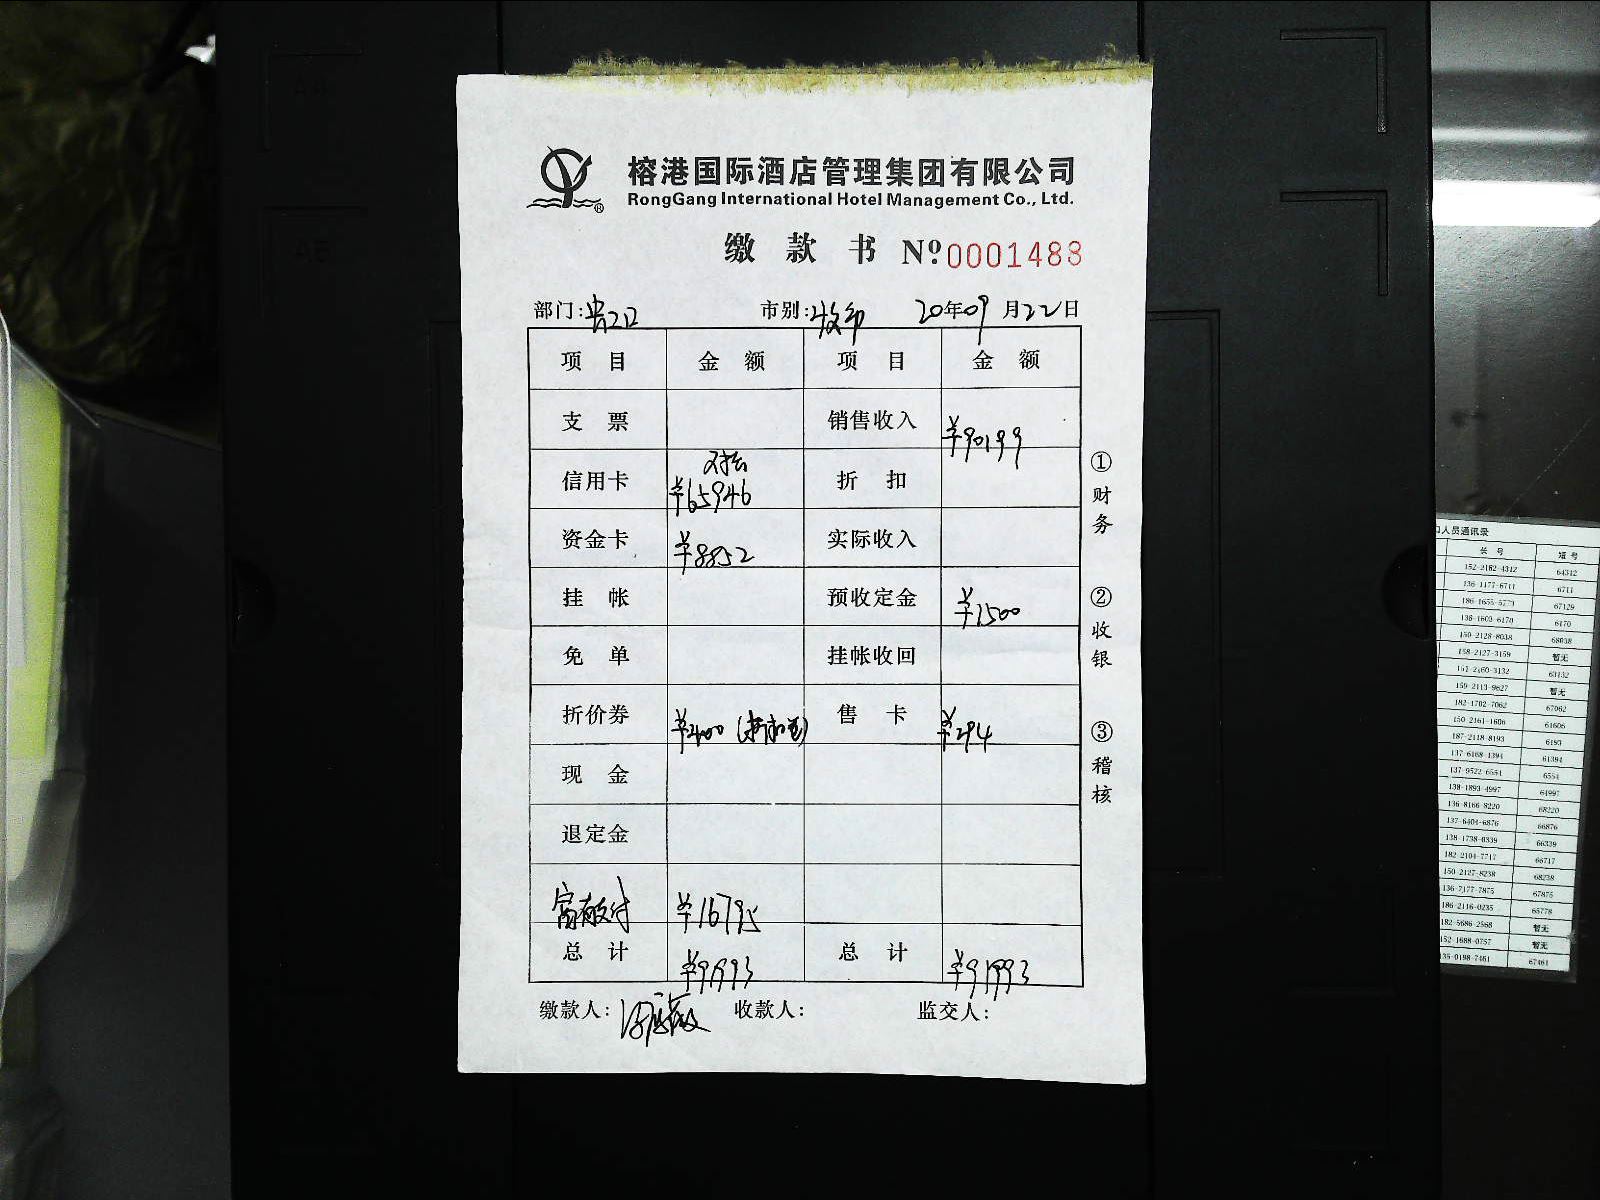 榕港国际酒店管理集团有限公司
RongGang International Hotel Management Co., Ltd.
缴款书 Nº 0001483
部门: 市别: 20年09月22日
项目 金额 项目 金额
支票 销售收入 ¥90199
信用卡 ¥65946 折扣
资金卡 ¥8852 实际收入
挂帐 预收定金 ¥1500
免单 挂帐收回
折价券 ¥400 售卡 ¥294
现金
退定金
富友支付 ¥16795
总计 ¥91993 总计 ¥91993
缴款人: 收款人: 监交人:
①财务
②收银
③稽核
人员通讯录
长号 短号
152-2182-4312 64312
136-1177-6711 6711
67129
138-1603-6170 6170
150-2128-8038 68038
158-2127-3159 暂无
63132
159-2113-9627 暂无
182-1702-7062 67062
150-2161-1606 61606
187-2118-8193 6193
137-6168-1394 61394
137-9522-6551
138-1893-4997 64997
136-8166-8220 68220
137-6404-6876 66876
138-1738-0339 66339
182-2104-7717 66717
150-2127-8238 68238
136-7177-7875 67875
186-2116-0235
182-5686-2568 暂无
152-1688-0757 暂无
135-0198-7461 67461